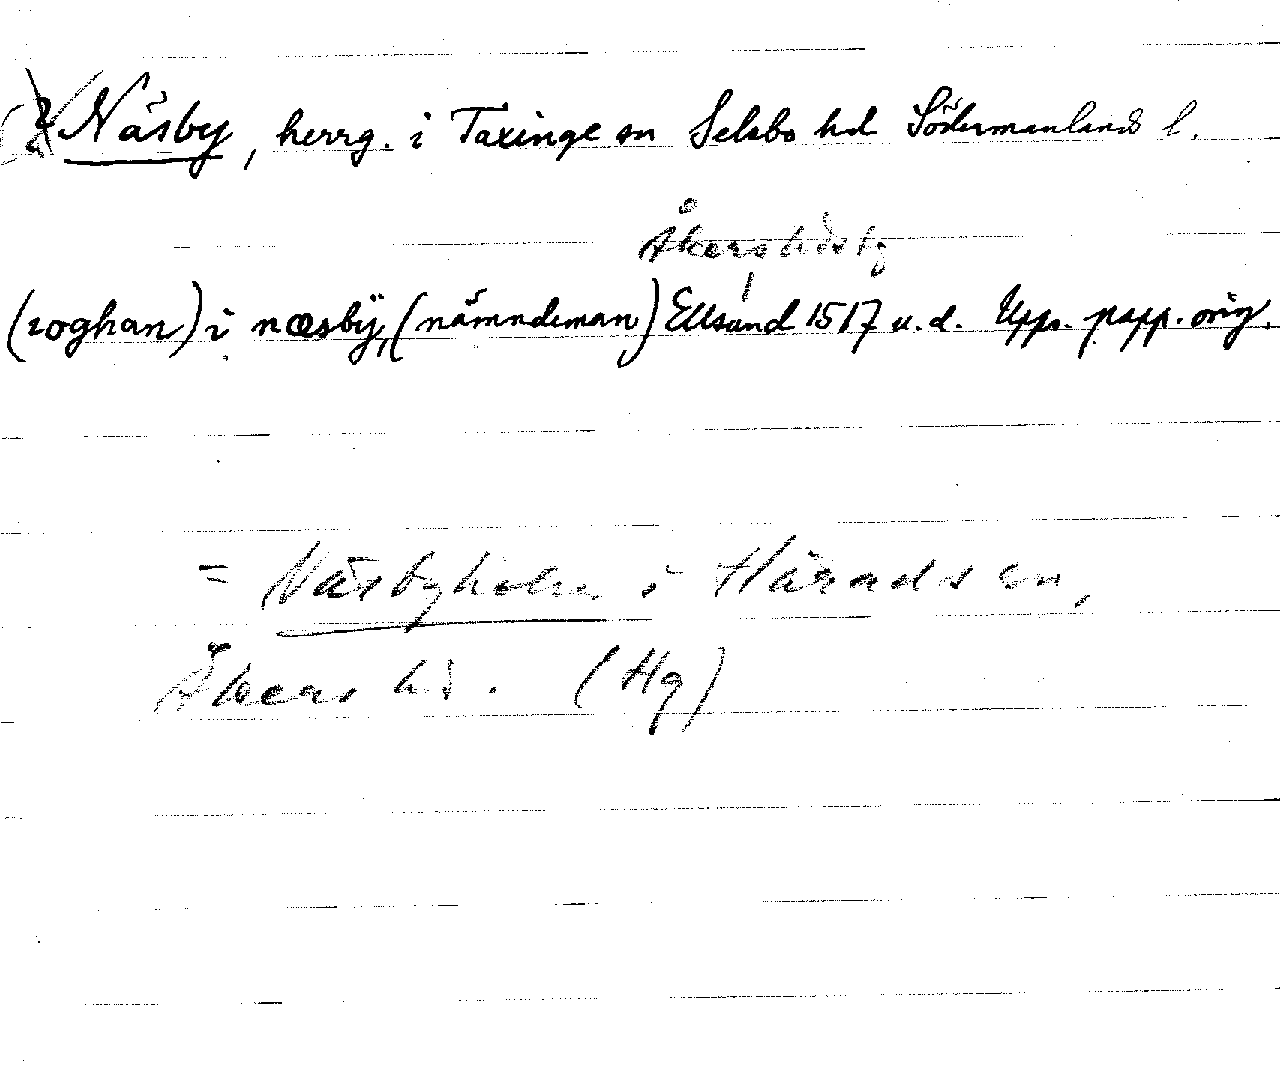 Näsby, herrg. i Taxinge sn Selebo hd Södermanlands l.
Åkers hdstg
(roghan) i næsbÿ, (nämndeman) Ellsund 1517 u.d. Upps. papp. orig.
= Näsbyholm i Härads sn,
Åkers hd. (Hg)